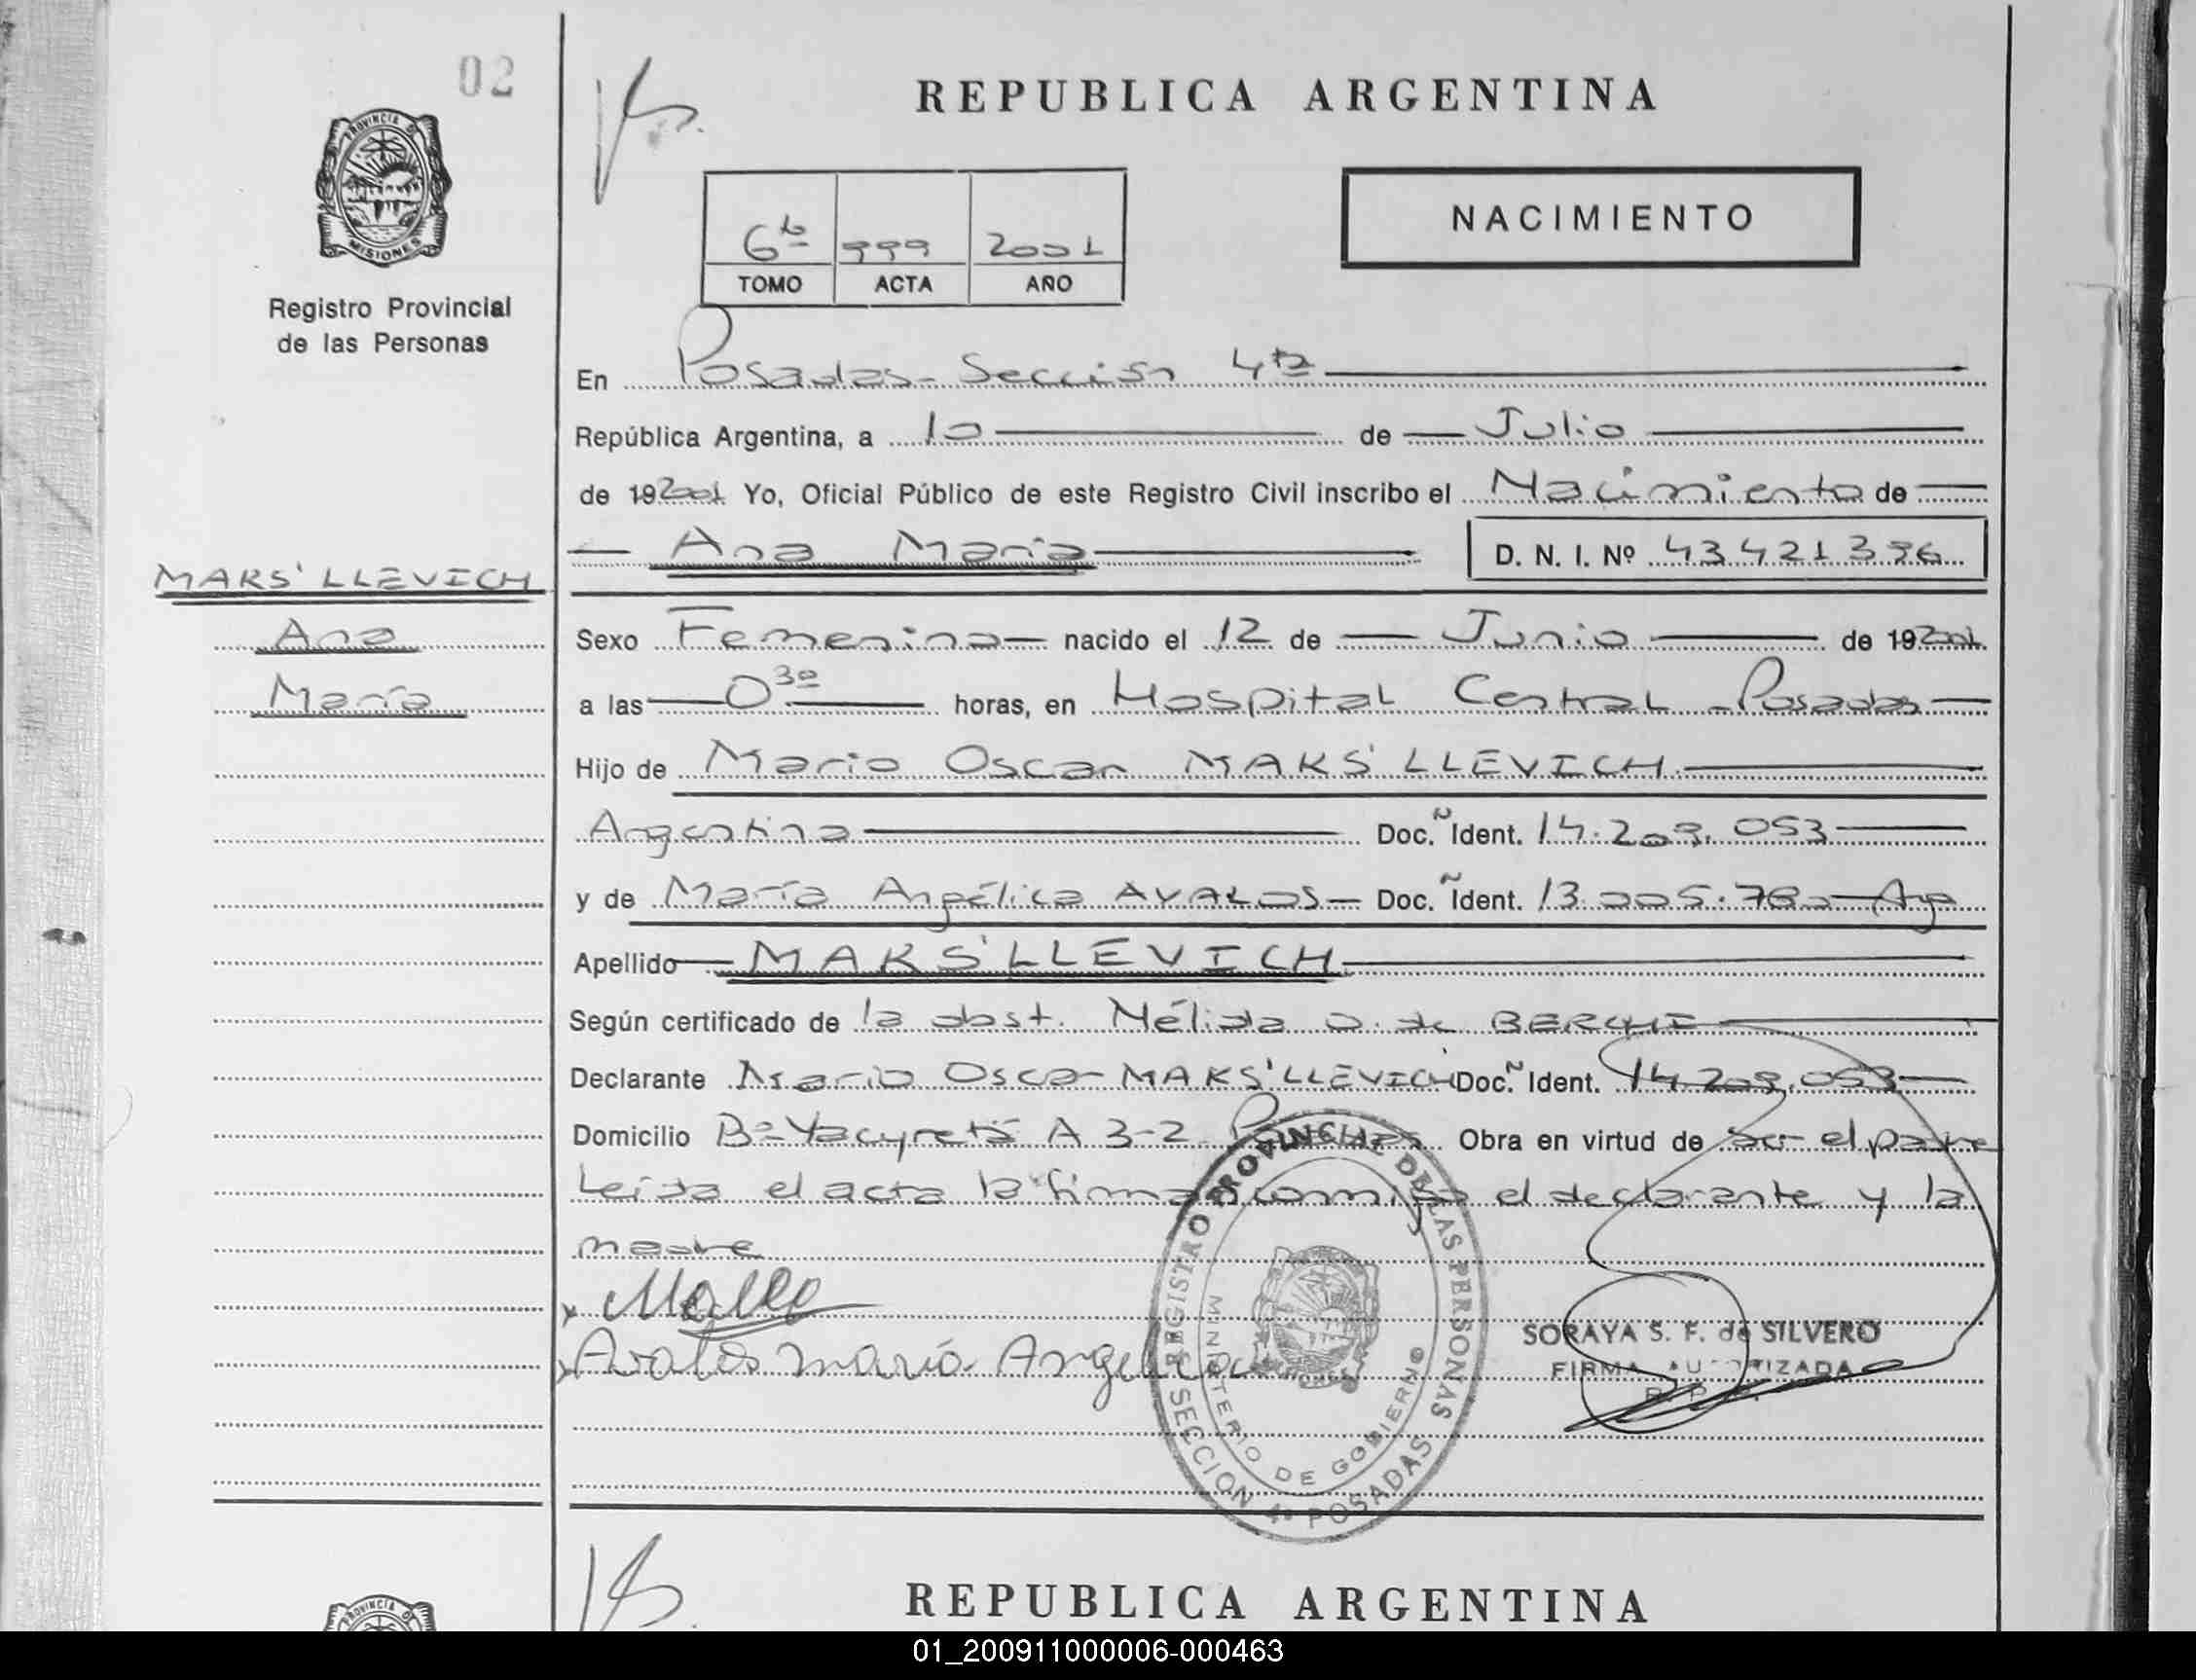 02
PROVINCIA D
MISIONES
Registro Provincial
de las Personas
REPUBLICA ARGENTINA
NACIMIENTO
6to 999 2001
TOMO ACTA AÑO
En Posadas - Sección 4ta
República Argentina, a 10 de Julio
de 192001 Yo, Oficial Público de este Registro Civil inscribo el Nacimiento de
Ana María D. N. I. Nº 43421396
MARS'LLEVICH
Ana
María
Sexo Femenino nacido el 12 de Junio de 192001
a las 0 30 horas, en Hospital Central - Posadas
Hijo de Mario Oscar MAKS'LLEVICH
Argentina Doc. Ñ Ident. 14.209.053
y de María Angélica AVALOS Doc. Ñ Ident. 13.005.780 Arg
Apellido MAKS'LLEVICH
Según certificado de la obst. Nélida O. de BERCHI
Declarante Mario Oscar MAKS'LLEVICH Doc. Ñ Ident. 14.209.053
Domicilio Bº Yacyretá A 3-2 Posadas Obra en virtud de ser el padre
Leída el acta la firman conmigo el declarante y la
madre
Avalos maria Angelica
REGISTRO PROVINCIAL DE LAS PERSONAS
MINISTERIO DE GOBIERNO
SECCION 4ª POSADAS
SORAYA S. F. de SILVERO
FIRMA AUTORIZADA
REPUBLICA ARGENTINA
PROVINCIA D
01_200911000006-000463